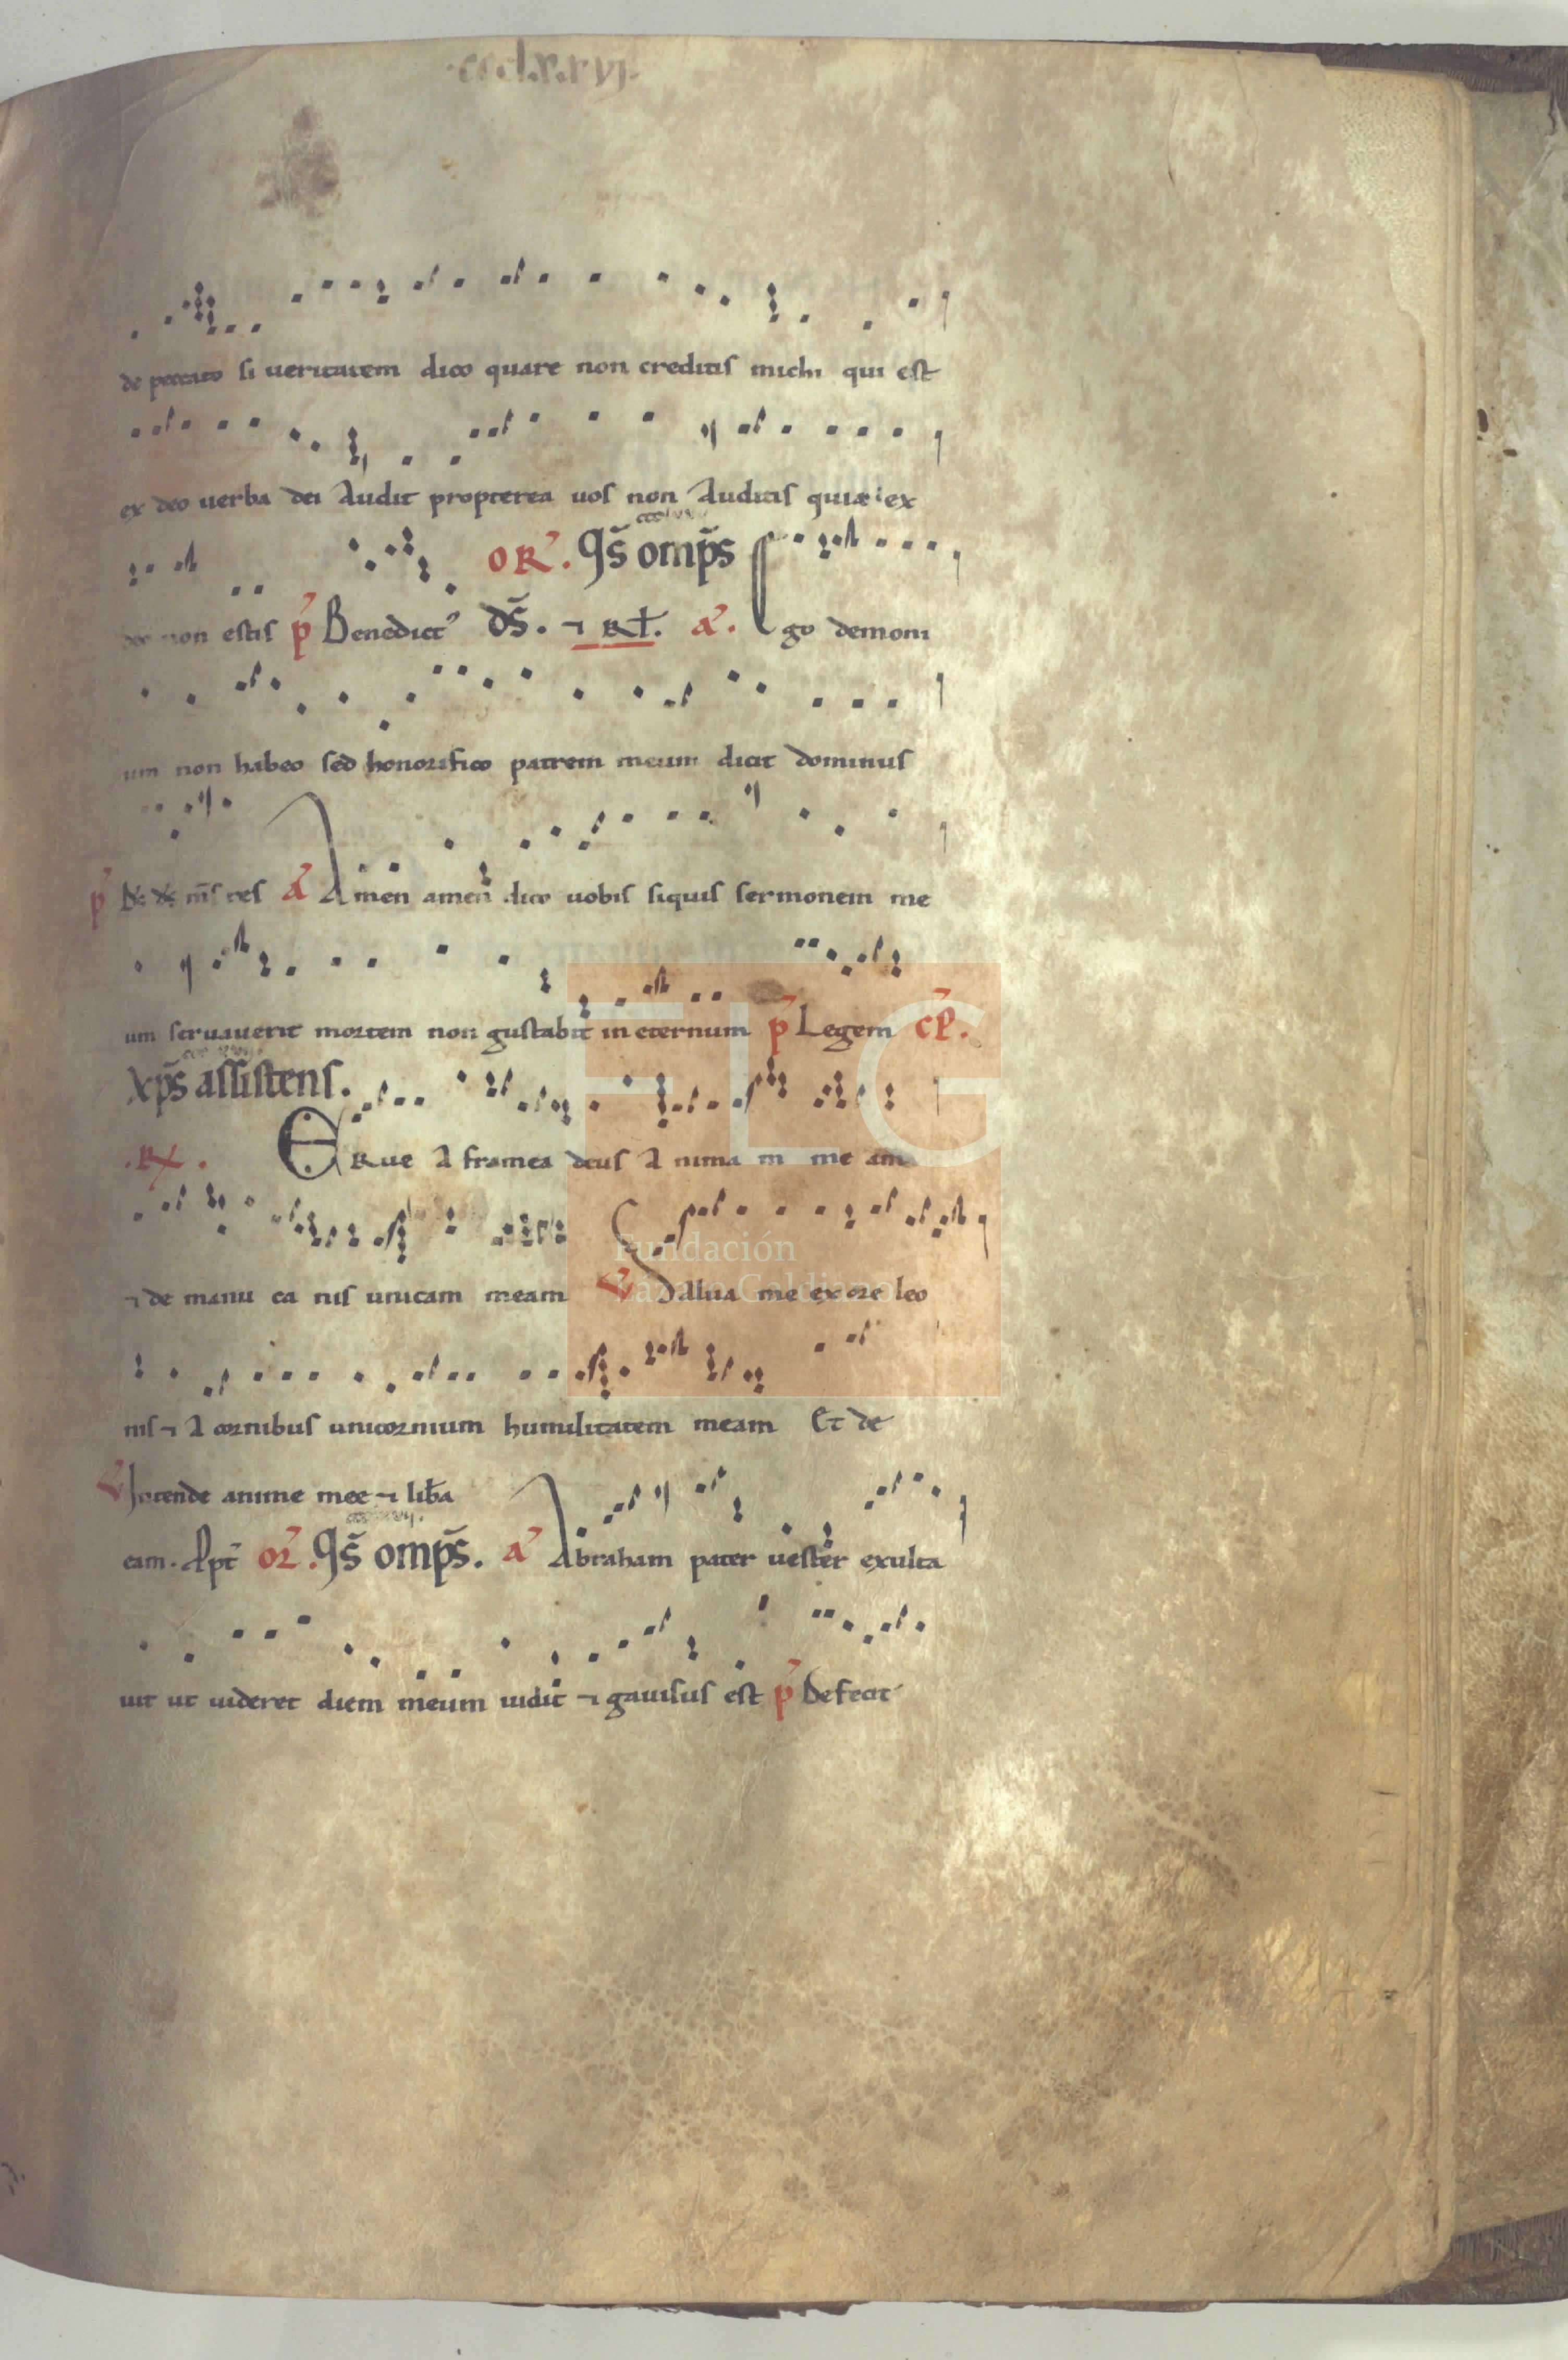 ·ccclxxvj·
de peccato si ueritatem dico quare non creditis michi qui est
ex deo uerba dei audit propterea uos non auditis quia ex
OR̃. q̄s om̄ps
deo non estis p̃ Benedict᾿ dS̄. ⁊ Rł. a᾿. Ego demoni
um non habeo sed honorifico patrem meum dicit dominus
p̃ a᾿ Amen amen dico uobis siquis sermonem me
um seruauerit mortem non gustabit in eternum p̃ Legem cP̃.
Xp̄s assistens.
.R. ERue a framea deus a nima m me am
⁊ de manu ca nis unicam meam V Salua me ex ore leo
nis ⁊ a cornibus unicornium humilitatem meam Et de
V Intende anime mee ⁊ lib̄a
eam. Ꝓpt̄ or̃. q̄s om̄ps. a᾿ Abraham pater uester exulta
uit ut uideret diem meum uidit ⁊ gauisus est p̃ Defecit
FLG
Fundación
Lázaro Galdiano